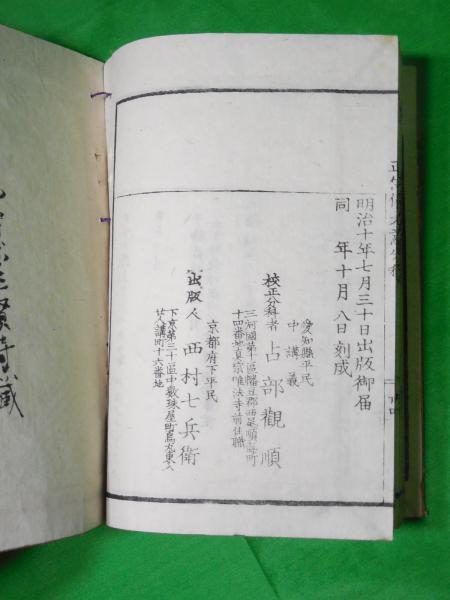 明治十年七月三十日出版御届
同　年十月　八日刻成
愛知縣平民
中講義
校正分科者　占部觀順
三河國第十區幡豆郡西尾順海町
十四番地真宗唯法寺前住職
京都府下平民
出版人　西村七兵衛
下京第三十區中數珠屋町烏丸東入
廿人講町十六番地